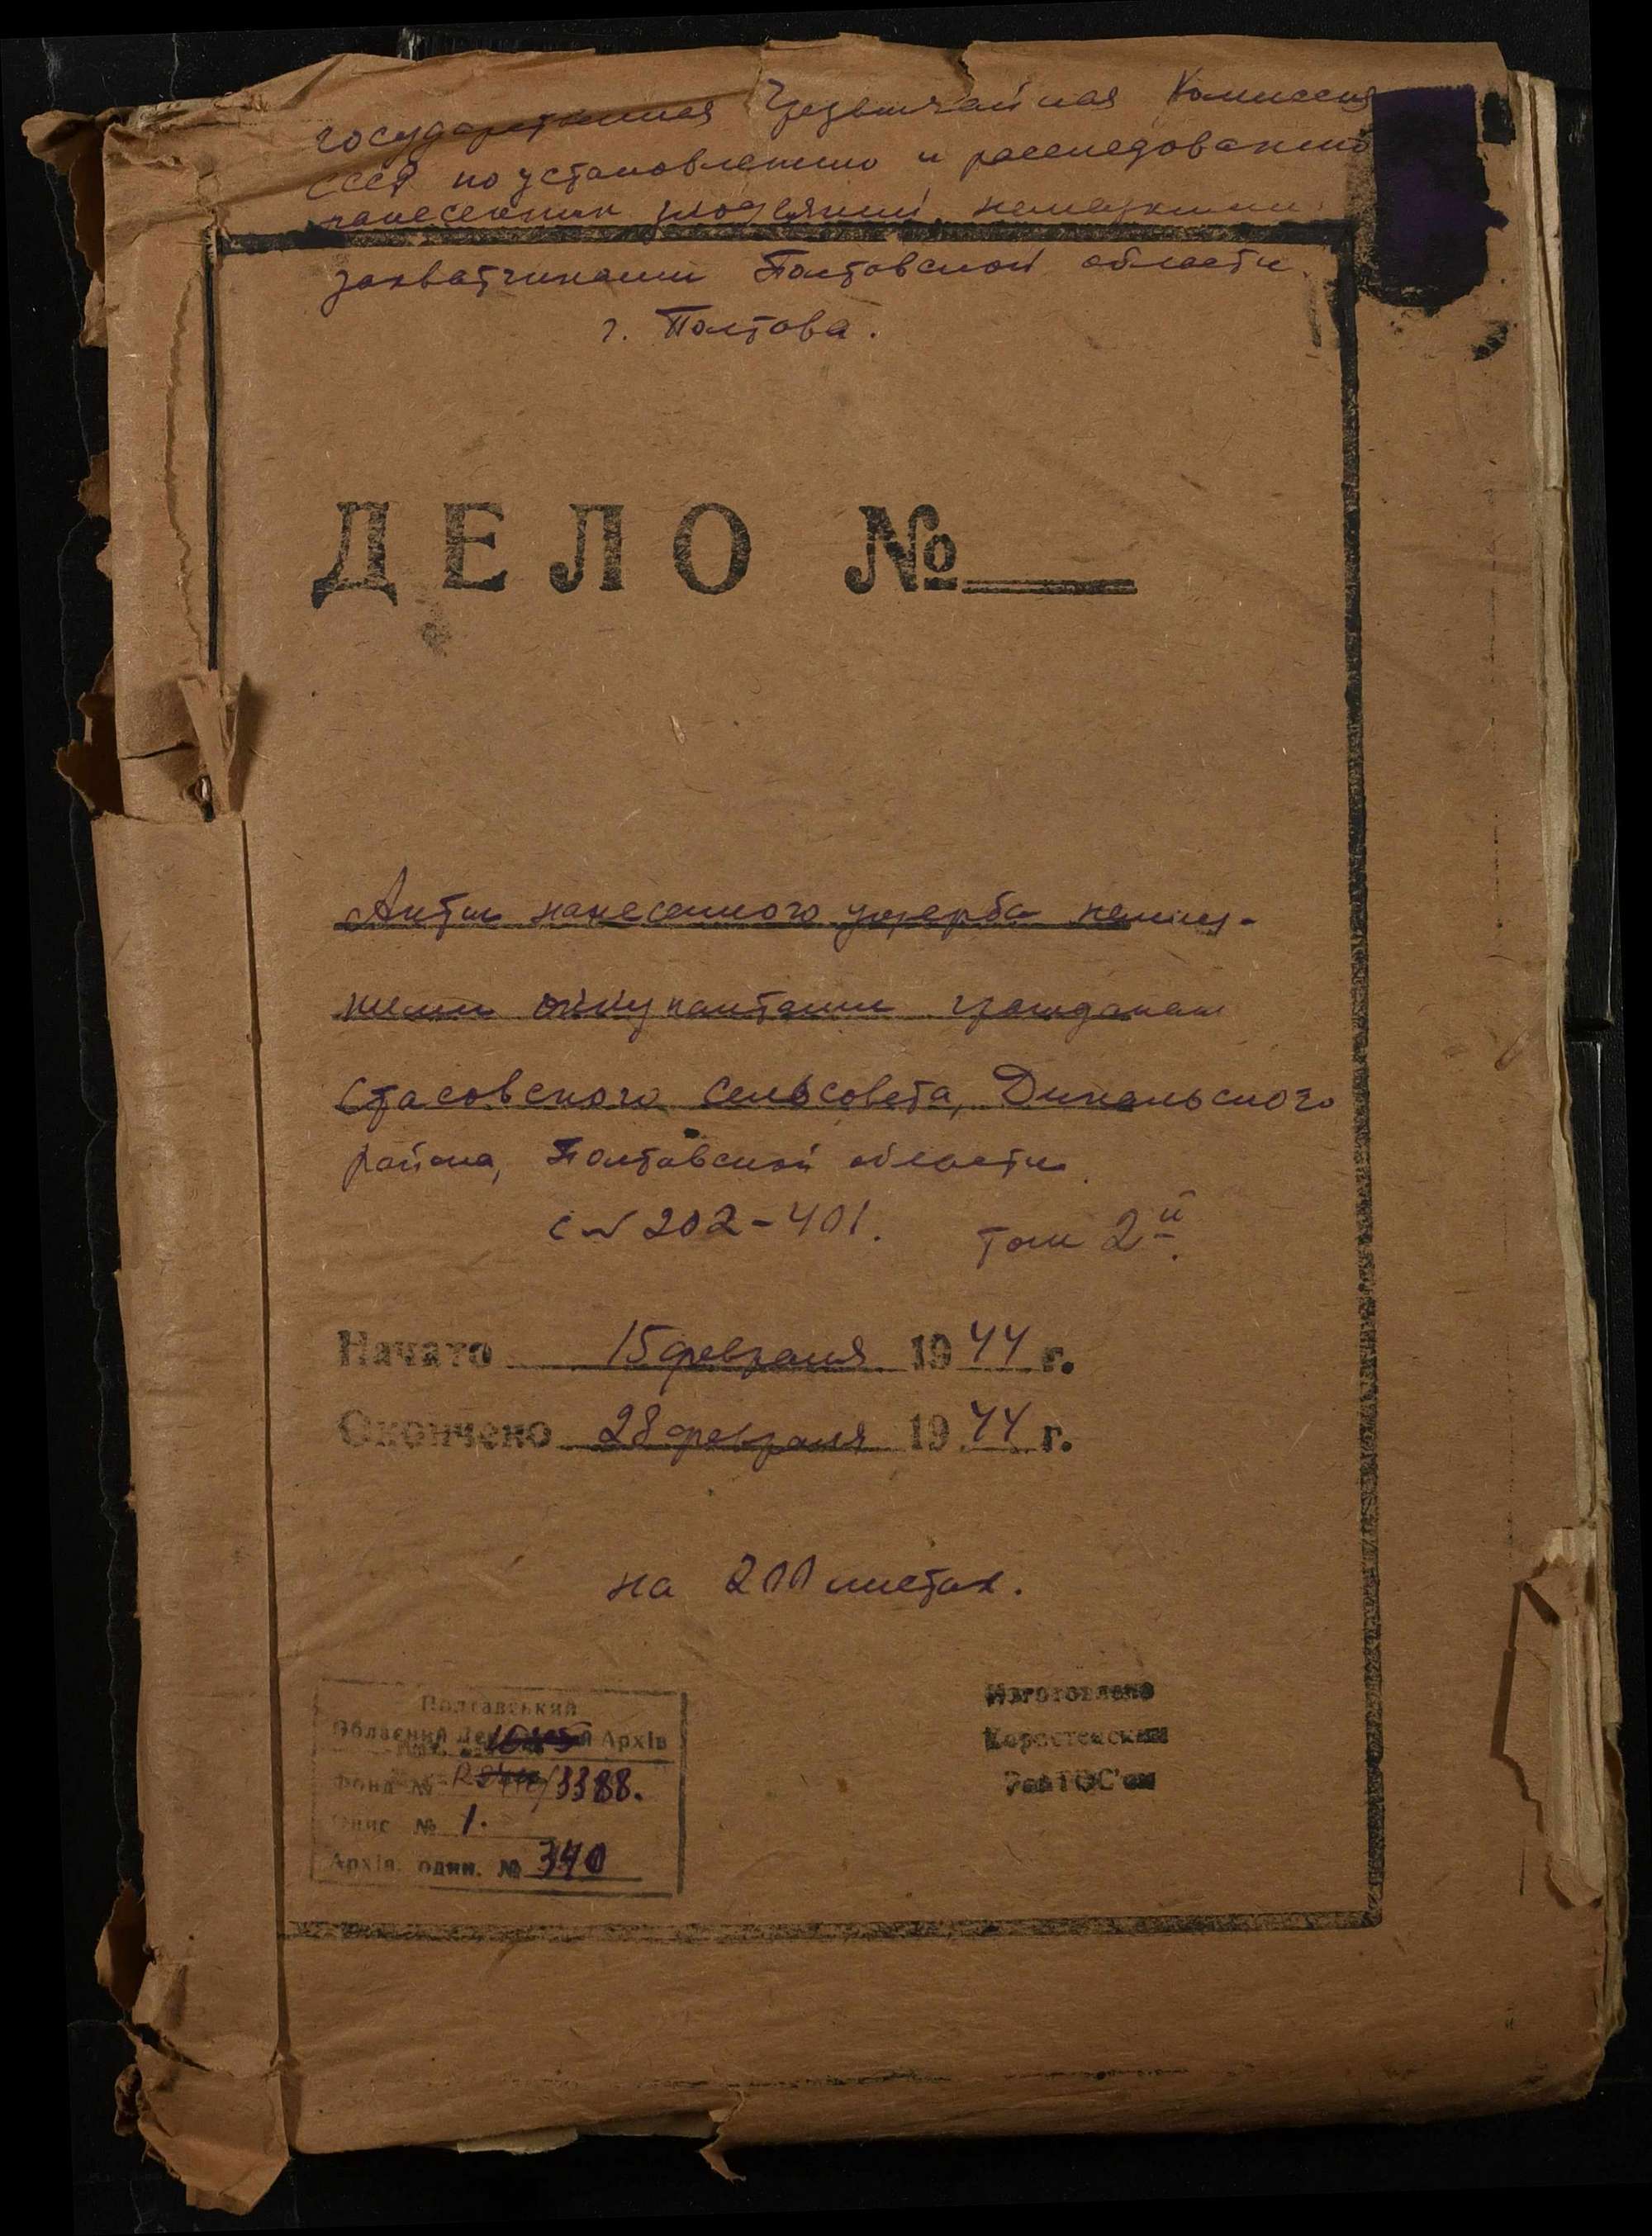 Государственная Чрезвычайная Комиссия
СССР по установлению и расследованию
нанесенных злодеяний немецкими
захватчиками Полтавской области.
г. Полтава.
ДЕЛО №
Акты нанесенного ущерба немец-
кими оккупантами гражданам
Стасовского сельсовета, Диканьского
района, Полтавской области.
с № 202-401. Том 2й.
Начато 15 февраля 1944 г.
Окончено 28 февраля 1944 г.
на 200 листах.
Полтавський
Обласний Архів
Фонд № 3388.
Опис № 1.
Архів. один. № 340
Изготовлено
Коростенским
РайТОС'ом